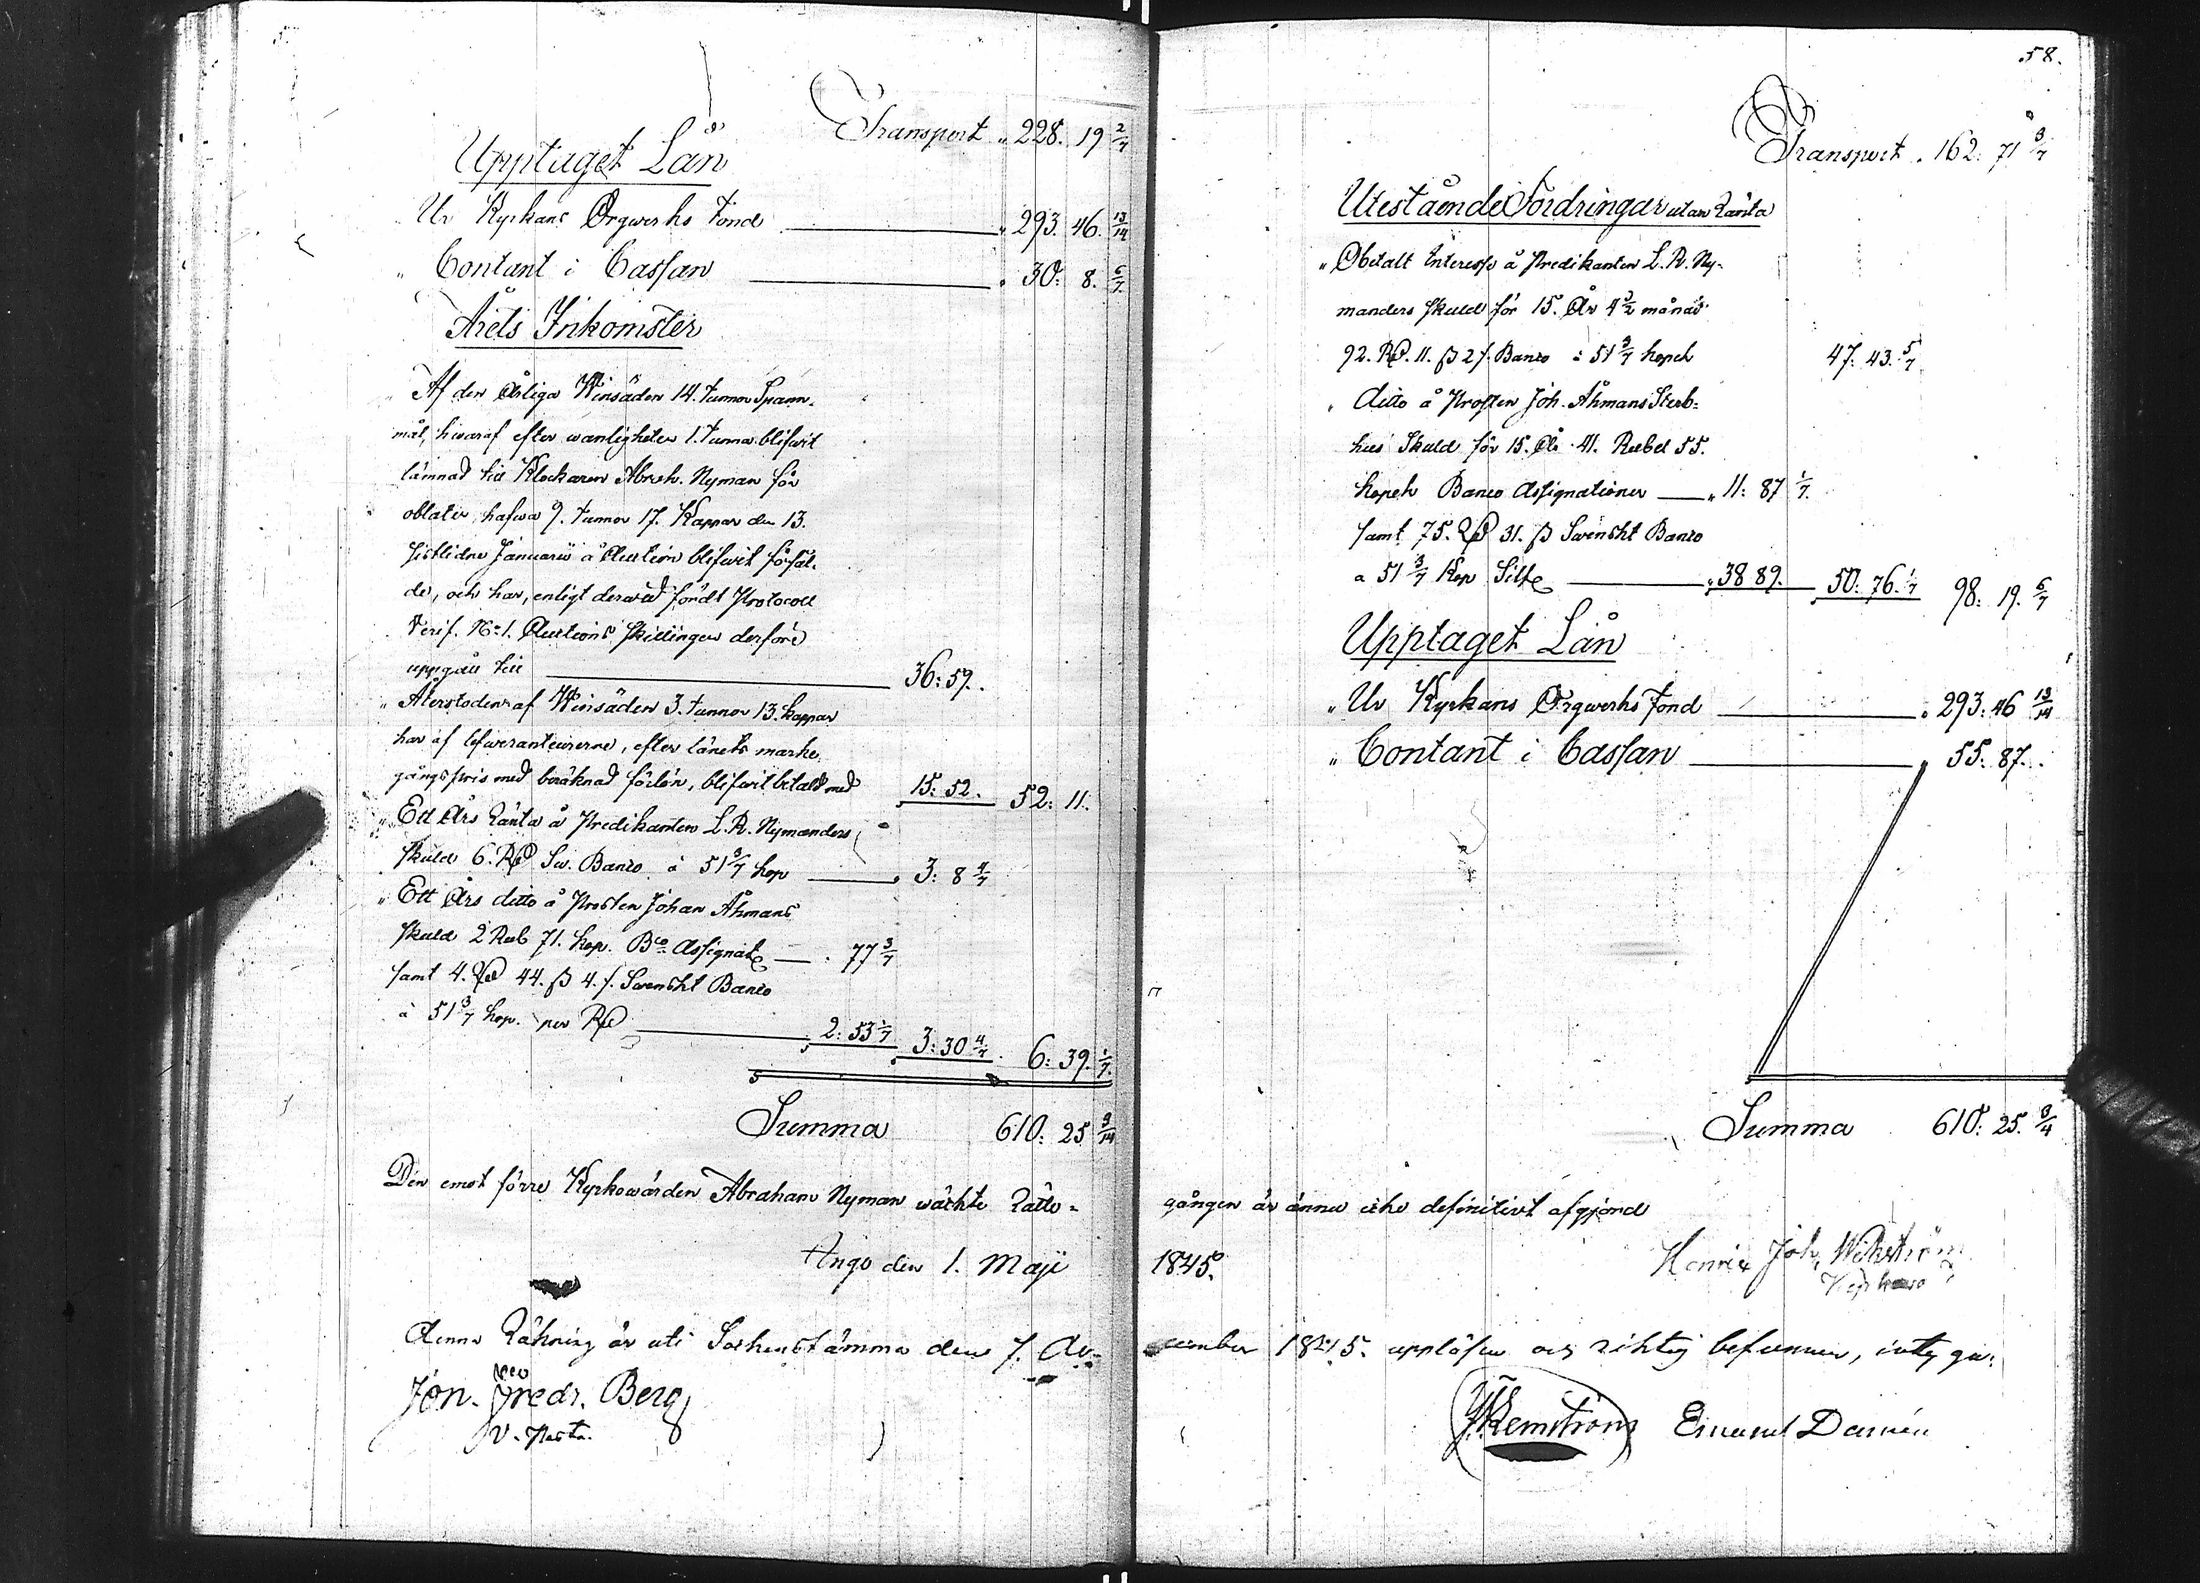 Transport „ 228. 19 2/7
Upptaget Lån
Ur Kyrkans Orgwerks Fond „ 293. 46. 13/14
„ Contant i Cassan „ 30: 8. 6/7.
Årets Inkomster
„ Af den Årliga Winsäden 14. tunnor Spann-
mål, hwaraf efter wanligheten 1. tunna blifwit
lämnad till Klockaren Abrah. Nyman för
oblater, hafwa 9. tunnor 17. Kappar den 13.
sistlidne Januarii å Auction blifwit försål-
de, och har, enligt derwid fördt Protocoll
Verif. N:o 1. Auctions skillingen derföre
uppgått till 36: 59.
„ Återstoden af Winsäden 3. tunnor 13. kappar
har af lefweranteurerne, efter länets marke-
gångspris med beräknad förlön, blifwit betald med 15: 52. 52: 11.
„ Ett Års Ränta å Predikanten L. R. Nymanders
skuld 6. Rd Sw. Banco à 51 3/7 kop „ 3: 8 4/7
„ Ett Års ditto å Prosten Johan Åhmans
skuld 2 Rub 71. kop. Bco Assignat. 77 3/7
samt 4. Rd 44. ß 4. f. Swenskt Banco
à 51 3/7 kop. per Rd 2: 53 1/7 3: 30 4/7 6: 39. 1/7.
Summa 610: 25 9/14
Den emot förre Kyrkowärden Abraham Nyman wäckte Rätte-
Ingo den 1. Maji
Denna Räkning är uti Sockenstämma den 7. De-
Joh. Fredr. Berg
V. Past.
58.
Transport „ 162: 71 3/7
Utestående Fordringar utan Ränta
„ Obetalt Interesse å Predikanten L. R. Ny-
manders skuld för 15. År 4 1/2 månad
92. Rd. 11. ß 2 f. Banco à 51 3/7 kopek 47: 43. 5/7.
„ Ditto å Prosten Joh. Åhmans Sterb-
hus Skuld för 15. År 41. Rubel 55.
kopek Banco Assignationer „ 11: 87 1/7.
samt 75. Rd 31. ß Swenskt Banco
a 51 3/7 Kop Silf. „ 38 89. 50: 76. 1/7 98: 19. 6/7
Upptaget Lån
„ Ur Kyrkans Orgwerks Fond „ 293: 46 13/14
„ Contant i Cassan „ 55: 87.
Summa 610: 25. 3/4
gången är ännu icke definitivt afgjord
1845. Henric Joh. Wikström
cember 1845. uppläsen och riktig befunnen, intyga:
Emanuel